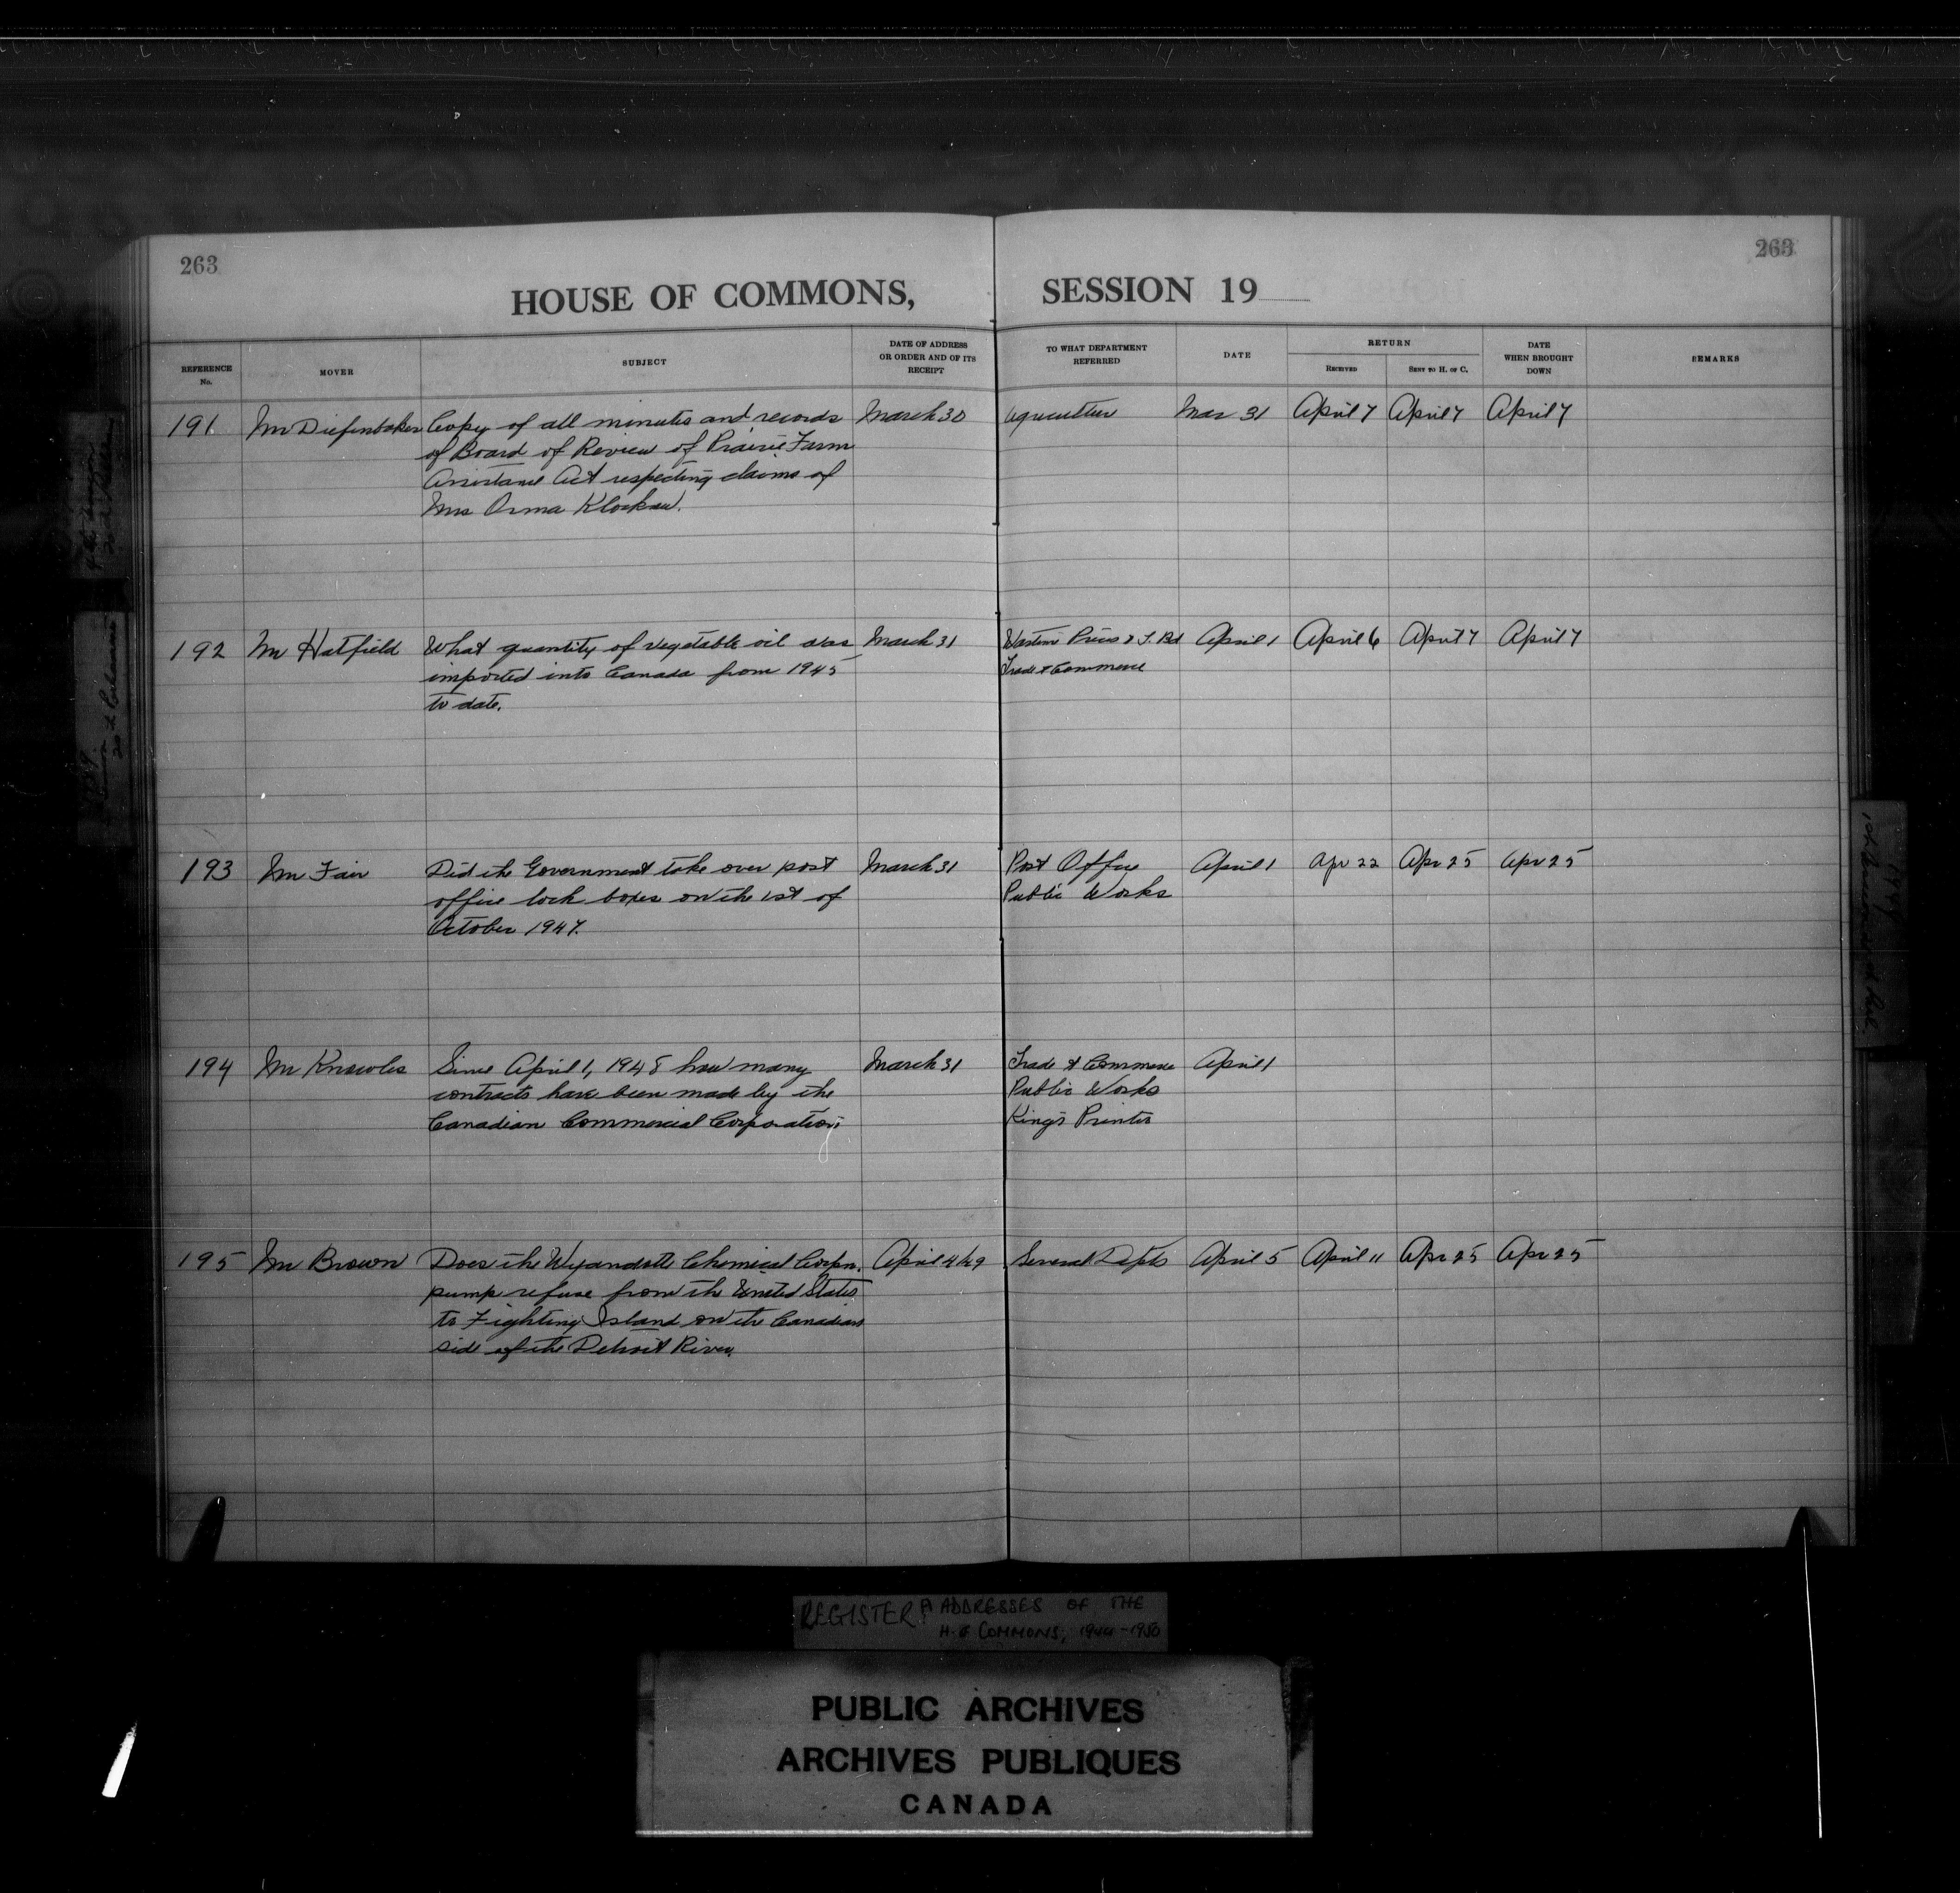 263
263
HOUSE OF COMMONS, SESSION 19
REFERENCE No.
MOVER
SUBJECT
DATE OF ADDRESS OR ORDER AND OF ITS RECEIPT
TO WHAT DEPARTMENT REFERRED
DATE
RETURN
RECEIVED
SENT TO H. OF C.
DATE WHEN BROUGHT DOWN
REMARKS
191 Mr Diefenbaker Copy of all minutes and records March 30 Agriculture Mar 31 April 7 April 7 April 7
of Board of Review of Prairie Farm
Assistance Act respecting claims of
Mrs Orma
192 Mr Hatfield What quantity of vegetable oil was March 31 Wartime Prices & T. Bd April 1 April 6 April 7 April 7
imported into Canada from 1945 Trade & Commerce
to date.
193 Mr Fair Did the Government take over post March 31 Post Office April 1 Apr 22 Apr 25 Apr 25
office lock boxes on the 1st of Public Works
October 1947.
194 Mr Knowles Since April 1, 1948 how many March 31 Trade & Commerce April 1
contracts have been made by the Public Works
Canadian Commercial Corporation King's Printer
195 Mr Brown Does the Wyandotte Chemical Corpn. April 4/49 Several Depts April 5 April 11 Apr 25 Apr 25
pump refuse from the United States
to Fighting Island on the Canadian
side of the Detroit River.
REGISTER ADDRESSES OF THE
H. of COMMONS, 1944-1950
PUBLIC ARCHIVES
ARCHIVES PUBLIQUES
CANADA